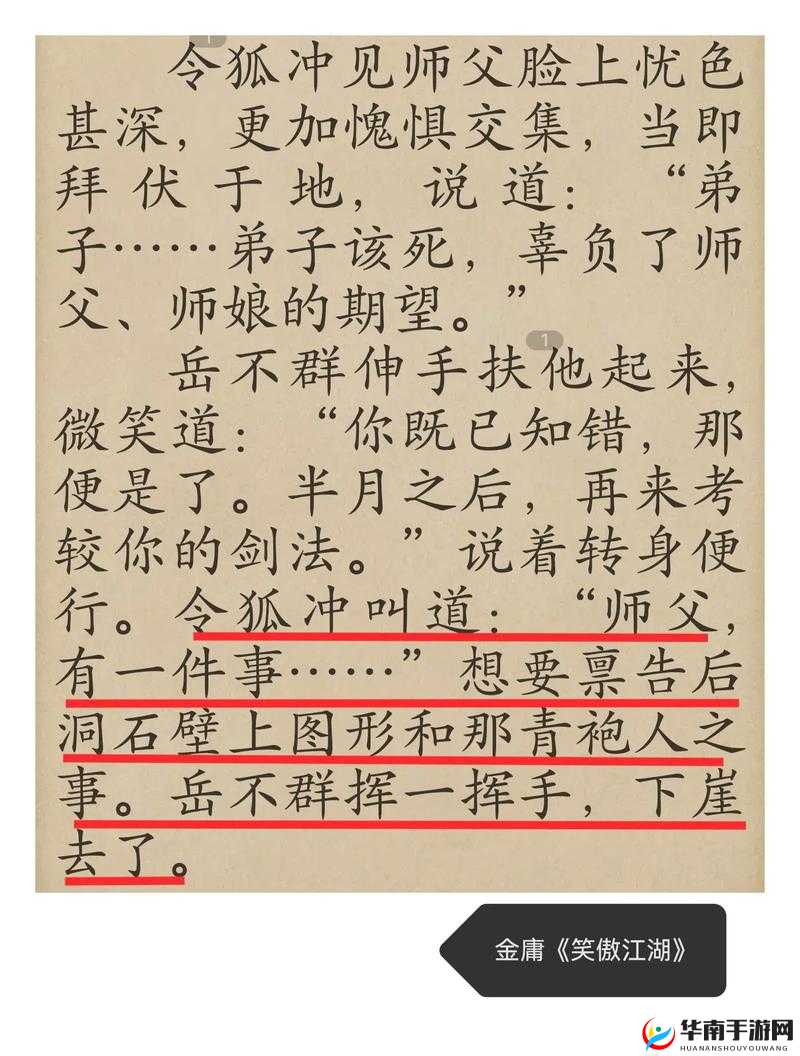 1
令狐冲见师父脸上忧色
甚深，更加愧惧交集，当即
拜伏于地，说道：“弟
子……弟子该死，辜负了师
父、师娘的期望。”
1
岳不群伸手扶他起来，
微笑道：“你既已知错，那
便是了。半月之后，再来考
较你的剑法。”说着转身便
行。令狐冲叫道：“师父，
有一件事……”想要禀告后
洞石壁上图形和那青袍人之
事。岳不群挥一挥手，下崖
去了。
金庸《笑傲江湖》
华南手游网
HUANANSHOUYOUWANG